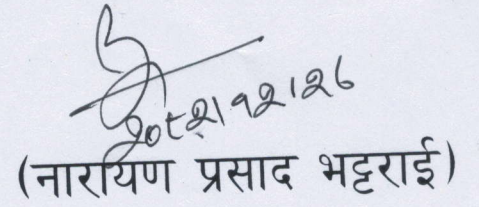 २०८२।१२।२६
(नारायण प्रसाद भट्टराई)